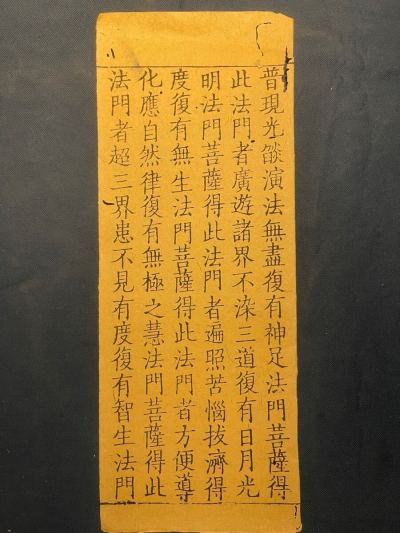 普現光燄演法無盡復有神足法門菩薩得
此法門者廣遊諸界不染三道復有日月光
明法門菩薩得此法門者遍照苦惱拔濟得
度復有無生法門菩薩得此法門者方便導
化應自然律復有無極之慧法門菩薩得此
法門者超三界患不見有度復有智生法門